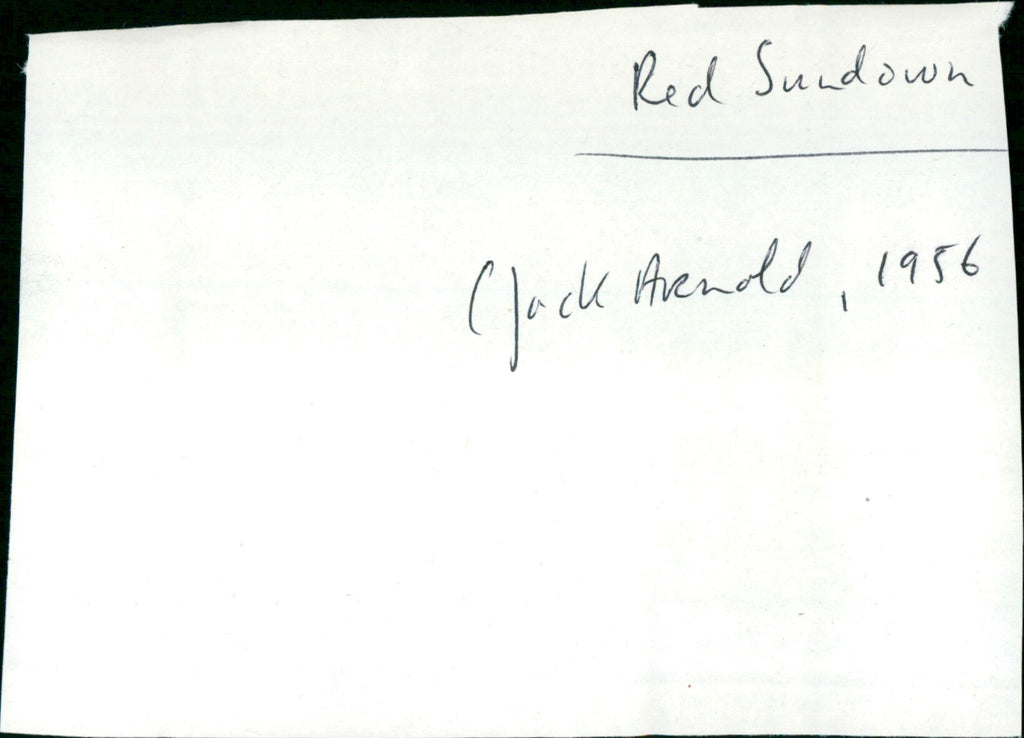 Red Sundown
(Jack Arnold, 1956